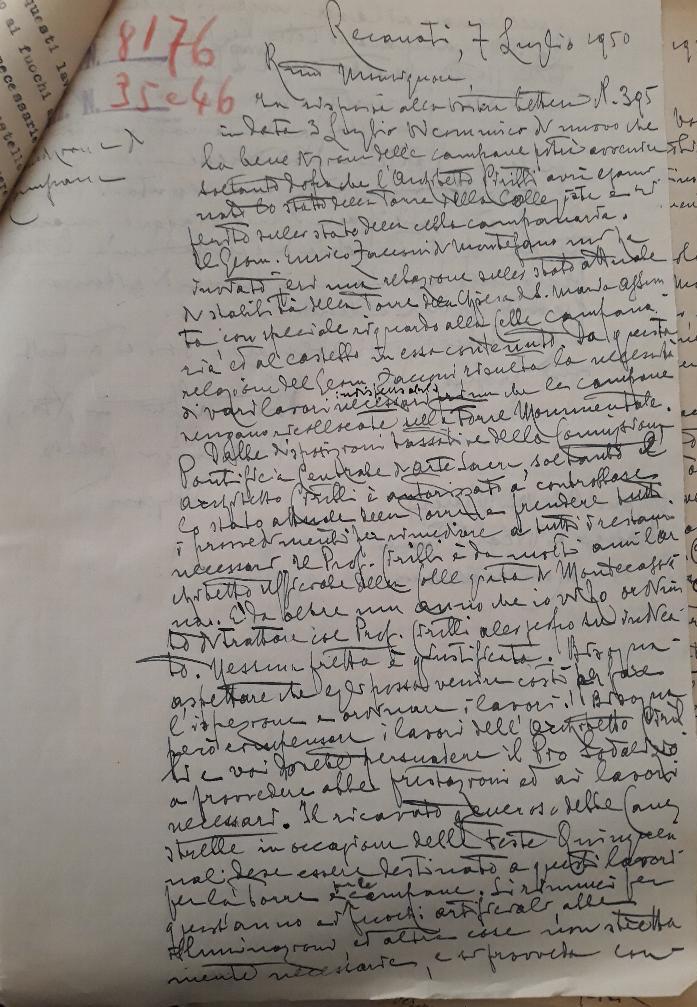 questi la
ai fuochi
necessari
N. 8176
N. 35246
Recanati, 7 Luglio 1950
Rev.mo Monsignore,
In risposta alla vostra lettera N. 395
in data 3 Luglio Vi comunico di nuovo che
la benedizione delle campane potrà avvenire
soltanto dopo che l'Architetto Cirilli avrà esami
nato lo stato della Torre della Collegiata e ri
ferito sullo stato della cella campanaria.
Il Geom. Enrico Jacconi di Montefano mi ha
inviato ieri una relazione sullo stato attuale
di stabilità della Torre della Chiesa di S. Maria Assun
ta con speciale riguardo alla Cella campana
ria ed al castello in essa contenuto. Da questa
relazione del Geom. Jacconi risulta la necessità
di vari lavori indispensabili prima che le campane
vengano ricollocate nella Torre Monumentale.
Dalle disposizioni tassative della Commissione
Pontificia Centrale di Arte Sacra, soltanto l'
architetto Cirilli è autorizzato a controllare
lo stato attuale della Torre e a prendere tutti
i provvedimenti per rimediare a tutti i restauri
necessari. Il Prof. Cirilli è da molti anni l'ar
chitetto ufficiale della Collegiata di Montecassia
no. È da oltre un anno che io vi ho ordina
to di trattare col Prof. Cirilli allo scopo su indica
to. Nessuna fretta è giustificata. Bisogna
aspettare che egli possa venire costì per fare
l'ispezione e ordinare i lavori. Bisogna
però i lavori dell'architetto Ciril
li e voi dovete persuadere il Pio Sodalizio
a provvedere alle prestazioni ed ai lavori
necessari. Il ricavato generoso delle Cane
strelle in occasione delle feste Quinquen
nali deve essere destinato a questi lavori
per la torre e le campane. Si rinunci per
quest'anno ai fuochi artificiali alle
illuminazioni ed altre cose non stretta
mente necessarie, e si provveda con